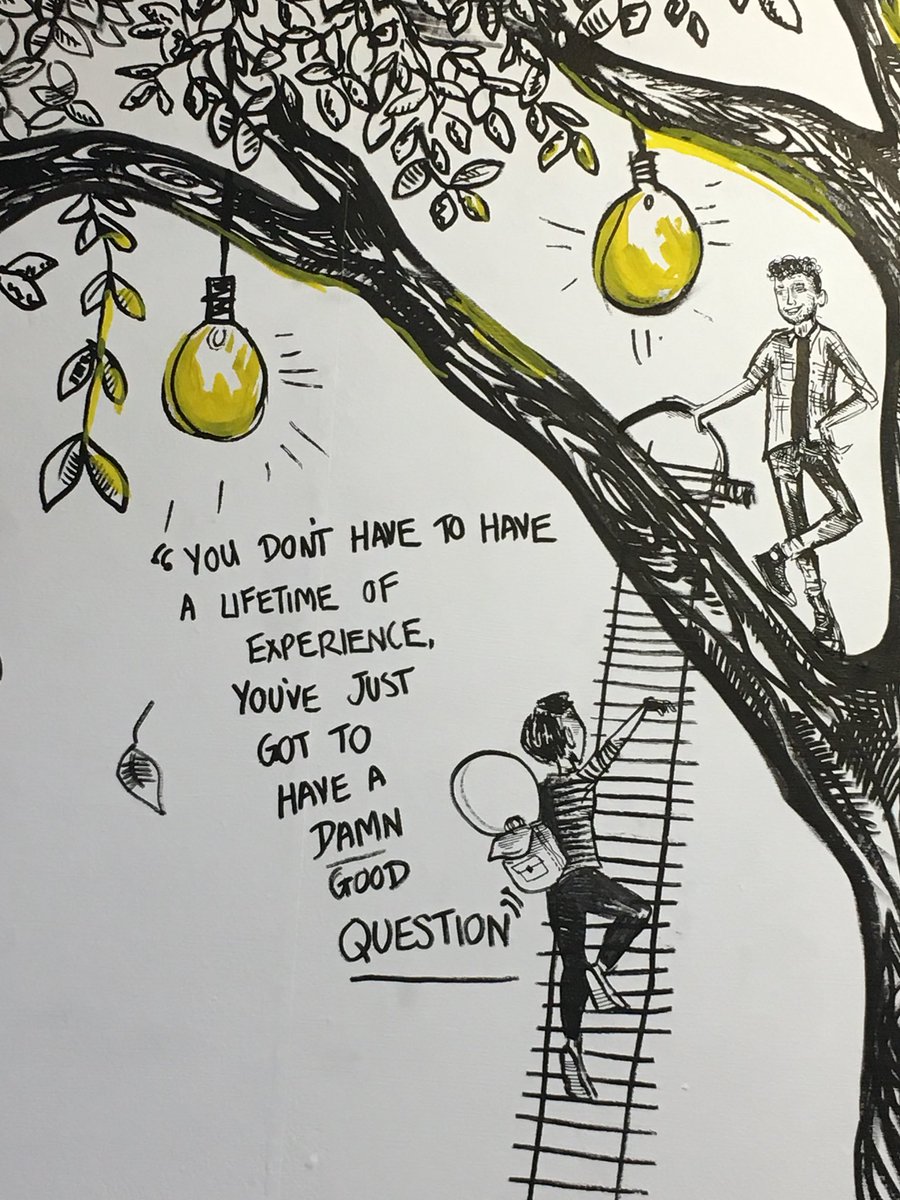 “YOU DON'T HAVE TO HAVE
A LIFETIME OF
EXPERIENCE,
YOU'VE JUST
GOT TO
HAVE A
DAMN
GOOD
QUESTION”